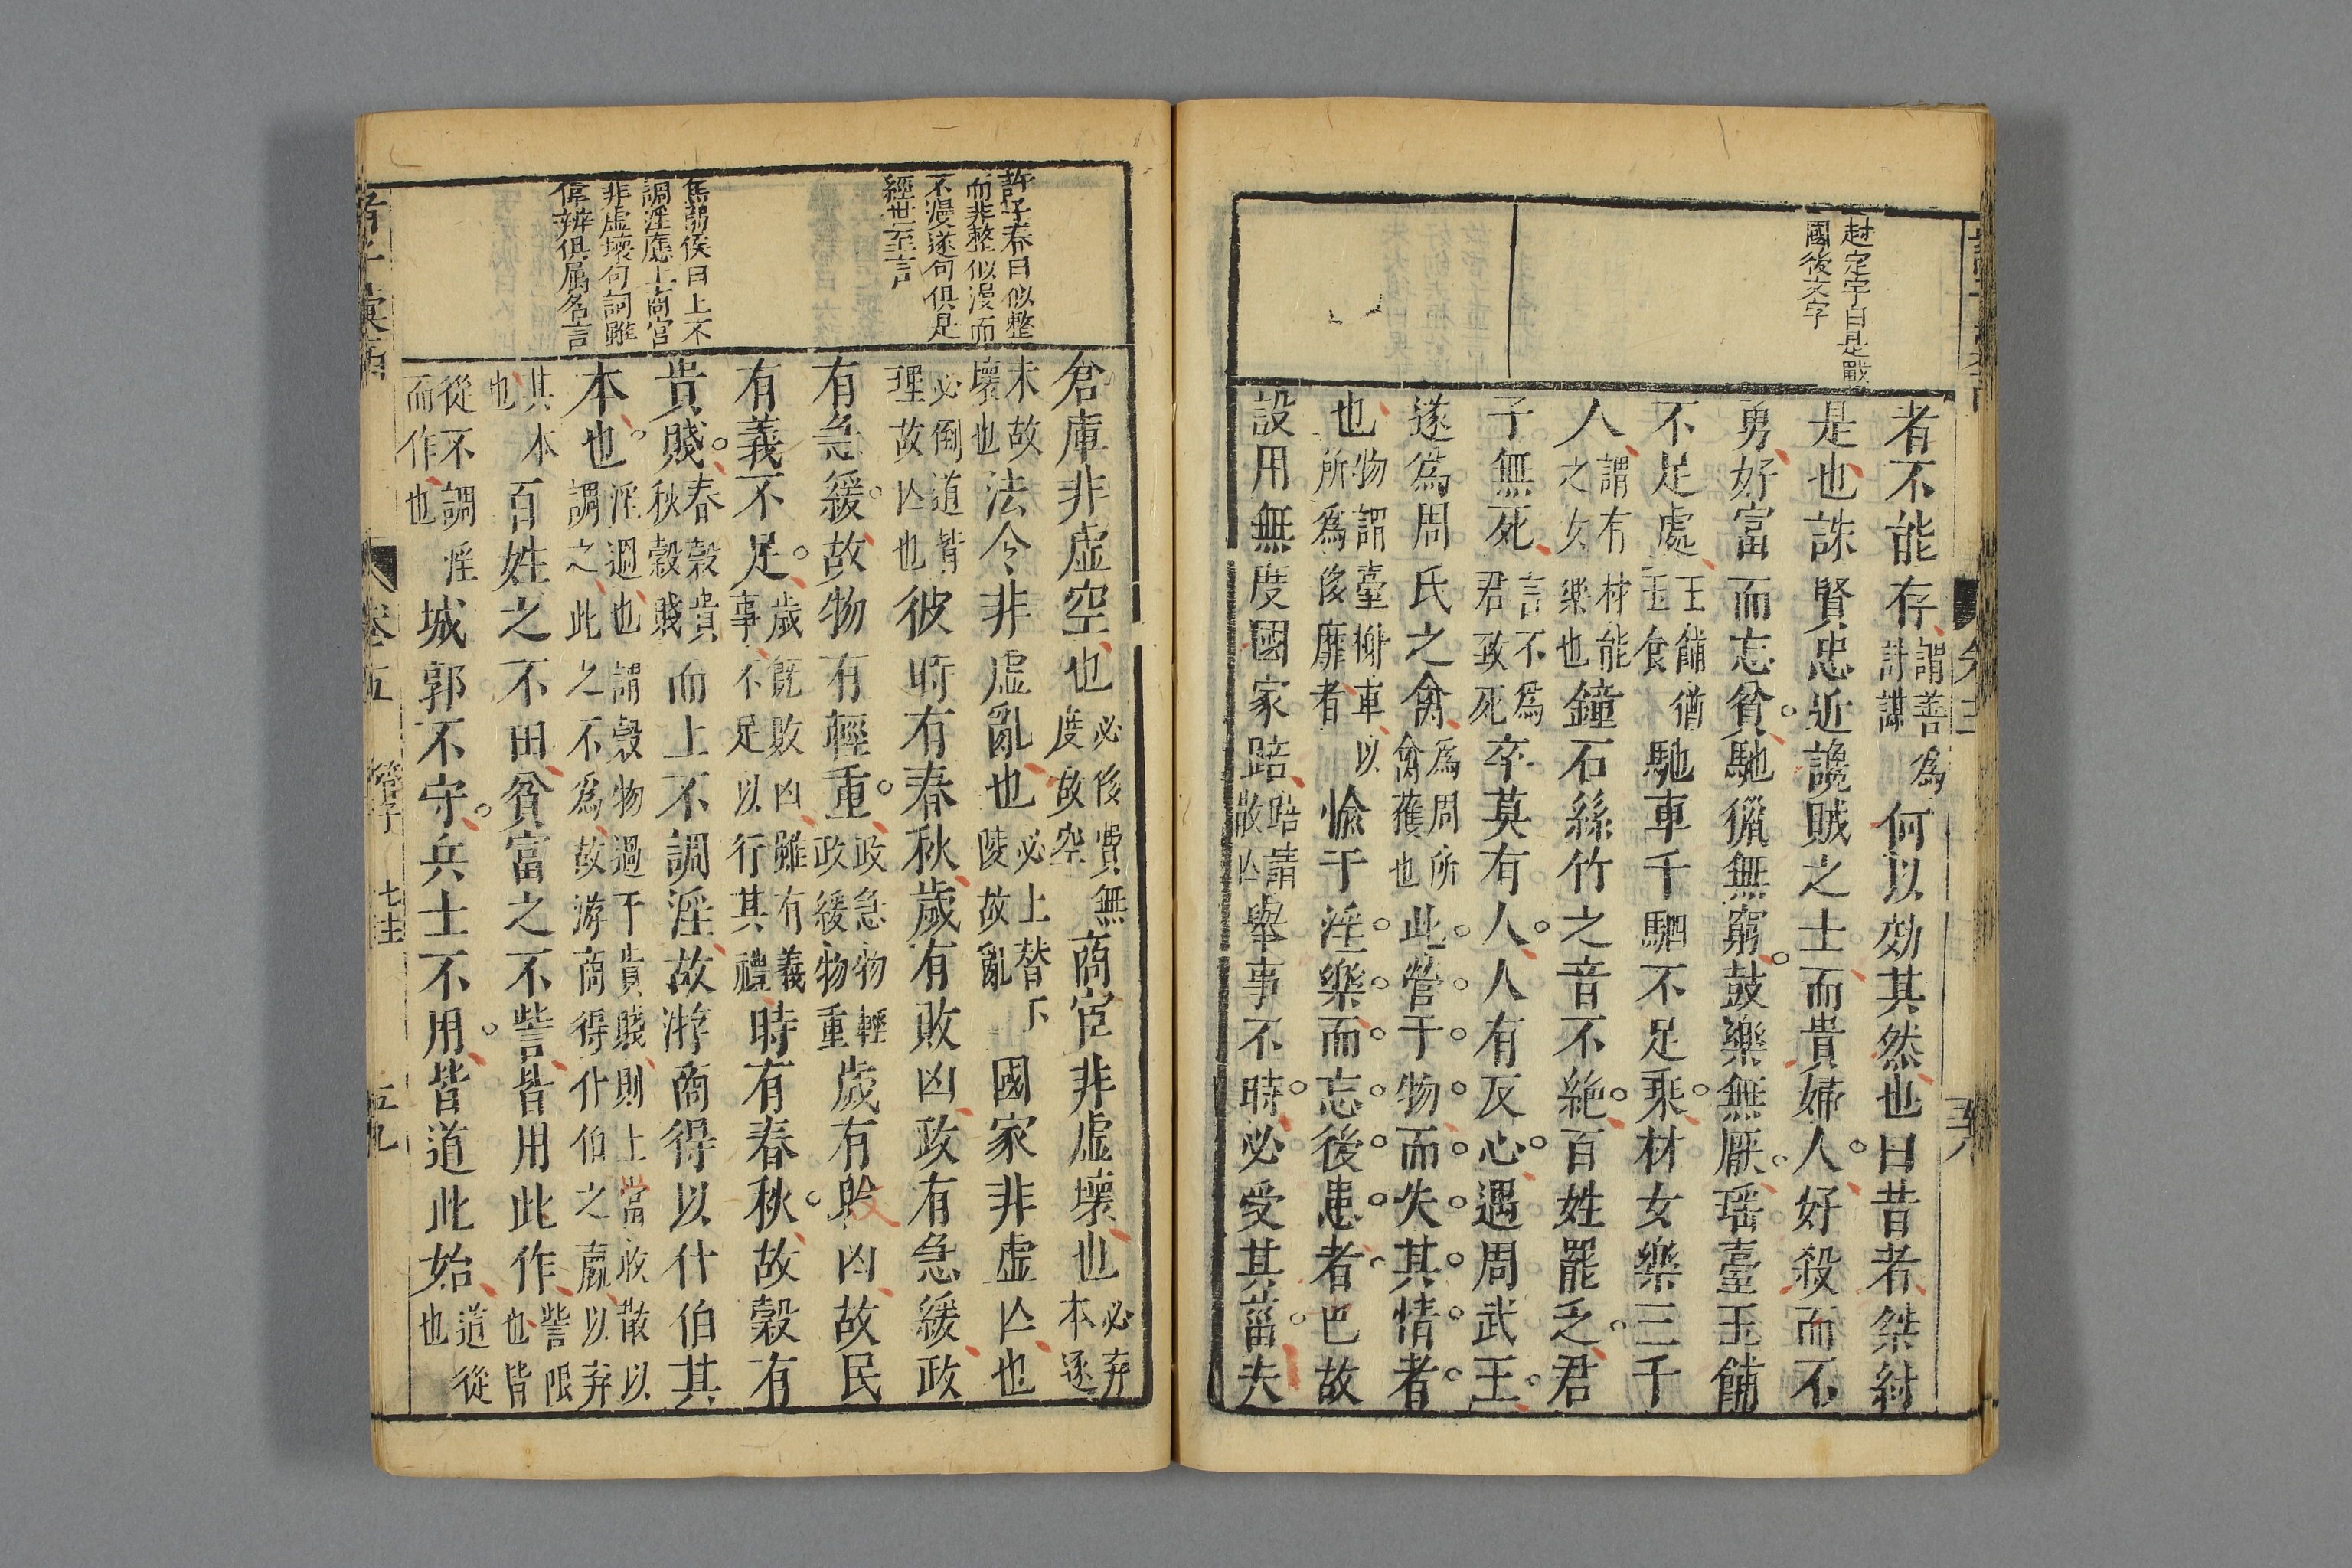 趙定宇曰是戰
國後文字
者不能存謂善為計謀何以効其然也曰昔者桀紂
是也誅賢忠近讒賊之士而貴婦人好殺而不
勇好富而忘貧馳獵無窮鼓樂無厭瑶臺玉餔
不足處玉餔猶玉食馳車千駟不足乘材女樂三千
人謂有材能之女樂也鐘石絲竹之音不絶百姓罷乏君
子無死言不為君致死卒莫有人人有反心遇周武王
遂為周氏之禽為周所禽獲也此營于物而失其情者
也物謂臺榭車以所為侈靡者愉于淫樂而忘後患者也故
設用無度國家踣踣謂散亡舉事不時必受其菑夫
許子春曰似整
而非整似漫而
不漫遂句俱是
經世至言
焦弱侯曰上不
調淫應上商宦
非虚壞句詞雖
偉辨俱属名言
倉庫非虚空也必侈費無度故空商宦非虚壞也必弃本逐
末故壞也法令非虚亂也必上替下陵故亂國家非虚亡也
必倒道背理故亡也彼時有春秋歲有敗凶政有急緩政
有急緩故物有輕重政急物輕政緩物重歲有敗凶故民
有義不足歲既敗凶雖有義事不足以行其禮時有春秋故穀有
貴賤春穀貴秋穀賤而上不調淫故游商得以什伯其
本也淫過也謂穀物過于貴賤則上當收散以調之此之不為故游商得什伯之贏以弃
其本也百姓之不田貧富之不訾皆用此作訾限也皆
從不調淫而作也城郭不守兵士不用皆道此始道從也
卷五
管子
五九